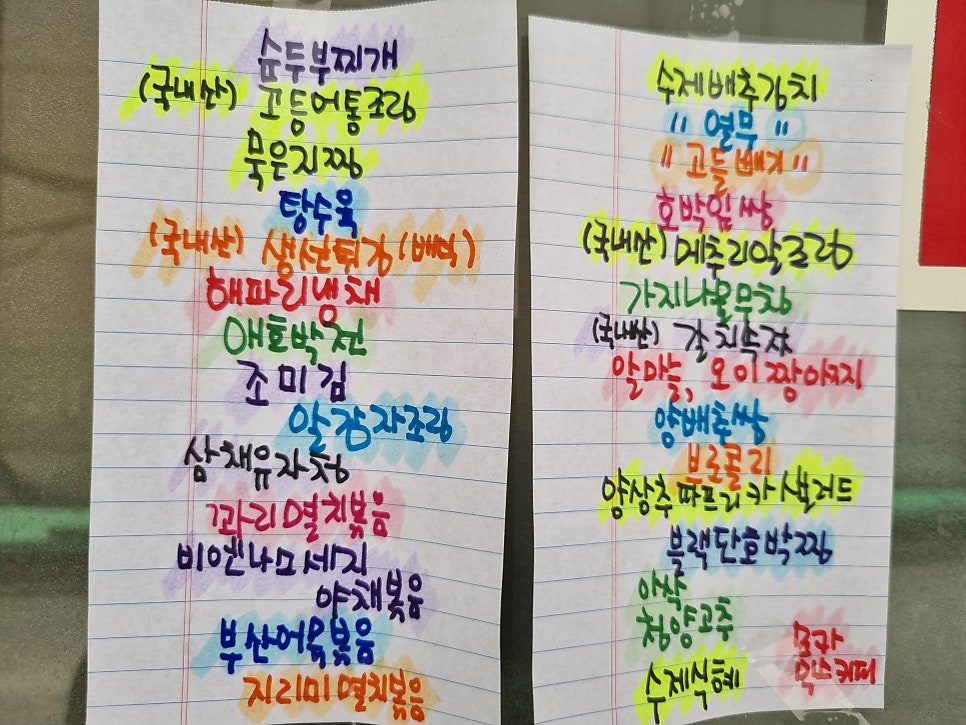 슌두부찌개
(국내산) 고등어통조림
묵은지찜
탕수육
(국내산) 생선튀김(배덕)
해파리냉채
애호박전
조미김
알감자조림
삼채유자청
꽈리멸치볶음
비엔나쏘세지
야채볶음
부산어묵볶음
지리미멸치볶음
수제배추김치
" 열무 "
" 고들빼기 "
호박잎쌈
(국내산) 메추리알조림
가지나물무침
(국내산) 갈치속젓
알마늘, 오이짱아찌
양배추쌈
브로콜리
양상추파프리카샐러드
블랙단호박찜
아삭
청양고추
수제식혜
모카
믹스커피